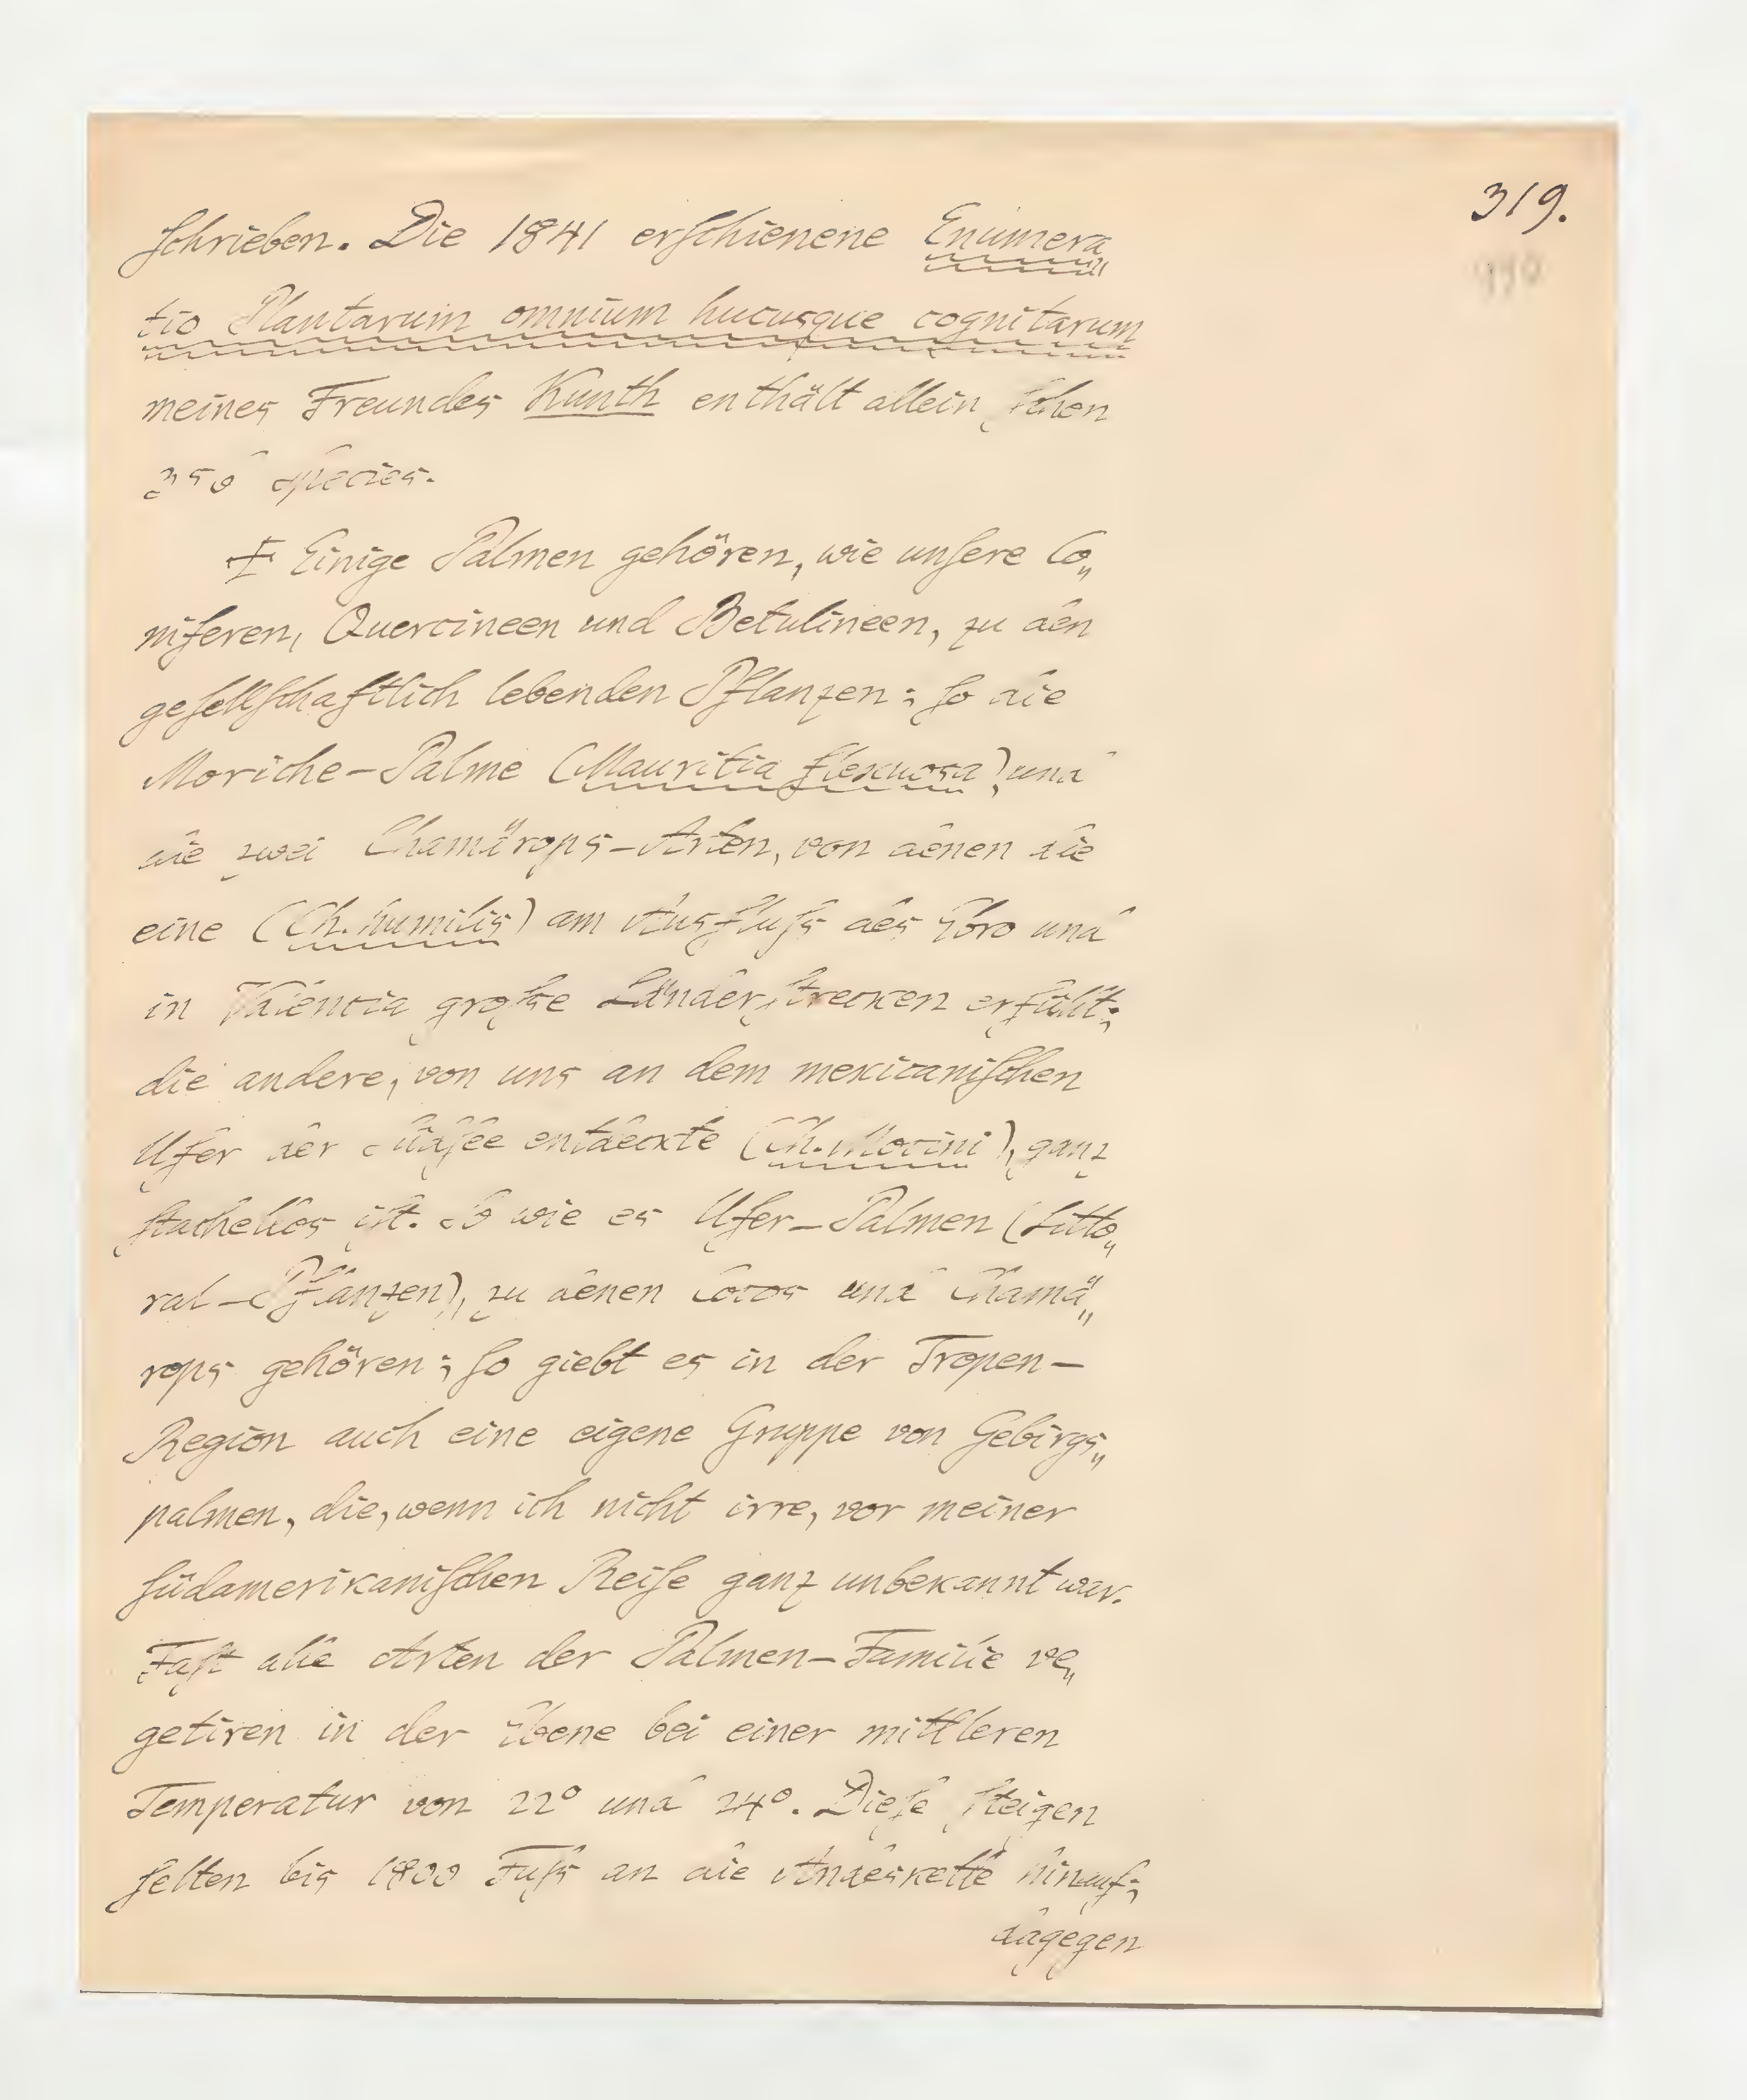 319.
ſchrieben. Die 1841 erſchienene Enumera„
tio Plantarum omnium hucusque cognitarum
meines Freundes Kunth enthält allein ſchon
356 Species.
Einige Palmen gehören, wie unſere Co„
niferen, Quercineen und Betulineen, zu den
geſellſchaftlich lebenden Pflanzen: ſo die
Moriche-Palme (Mauritia flexuosa), und
die zwei Chamärops-Arten, von denen die
eine (Ch. humilis) am Ausfluſs des Ebro und
in Valencia groſse Länderſtrecken erfüllt;
die andere, von uns an dem mexicaniſchen
Ufer der Südſee entdeckte (Ch. Mocini), ganz
ſtachellos iſt. So wie es Ufer-Palmen (Litto„
ral-Pflanzen), zu denen Cocos und Chamä„
rops gehören; ſo giebt es in der Tropen-
Region auch eine eigene Gruppe von Gebirgs„
palmen, die, wenn ich nicht irre, vor meiner
ſüdamerikaniſchen Reiſe ganz unbekannt war.
Faſt alle Arten der Palmen-Familie ve„
getiren in der Ebene bei einer mittleren
Temperatur von 22° und 24°. Dieſe ſteigen
ſelten bis 1800 Fuſs an die Andeskette hinauf;
dagegen